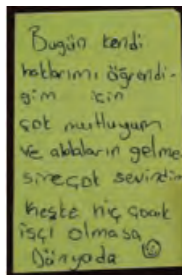 Bugün kendi
haklarımı öğrendi-
ğim için
çok mutluyum
ve ablaların gelme
sine çok sevindim
keşke hiç çocuk
işçi olmasa
Dünyada